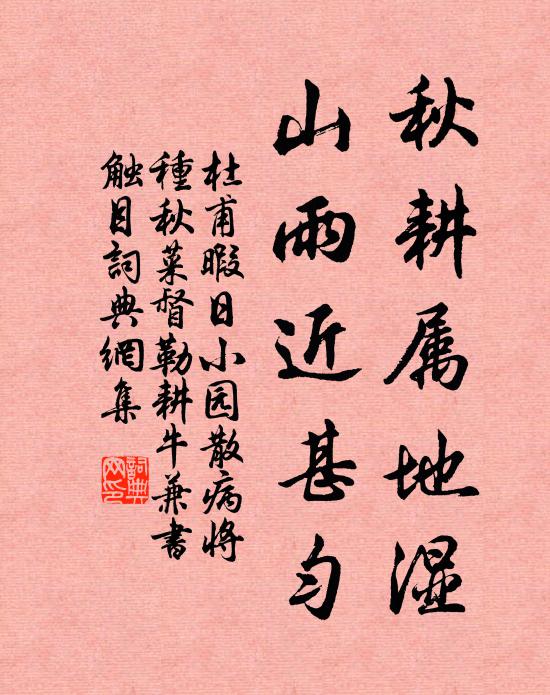 秋耕属地湿
山雨近甚匀
杜甫暇日小园散病将
種秋菜督勒耕牛兼書
触目詞典網集
詞典网印